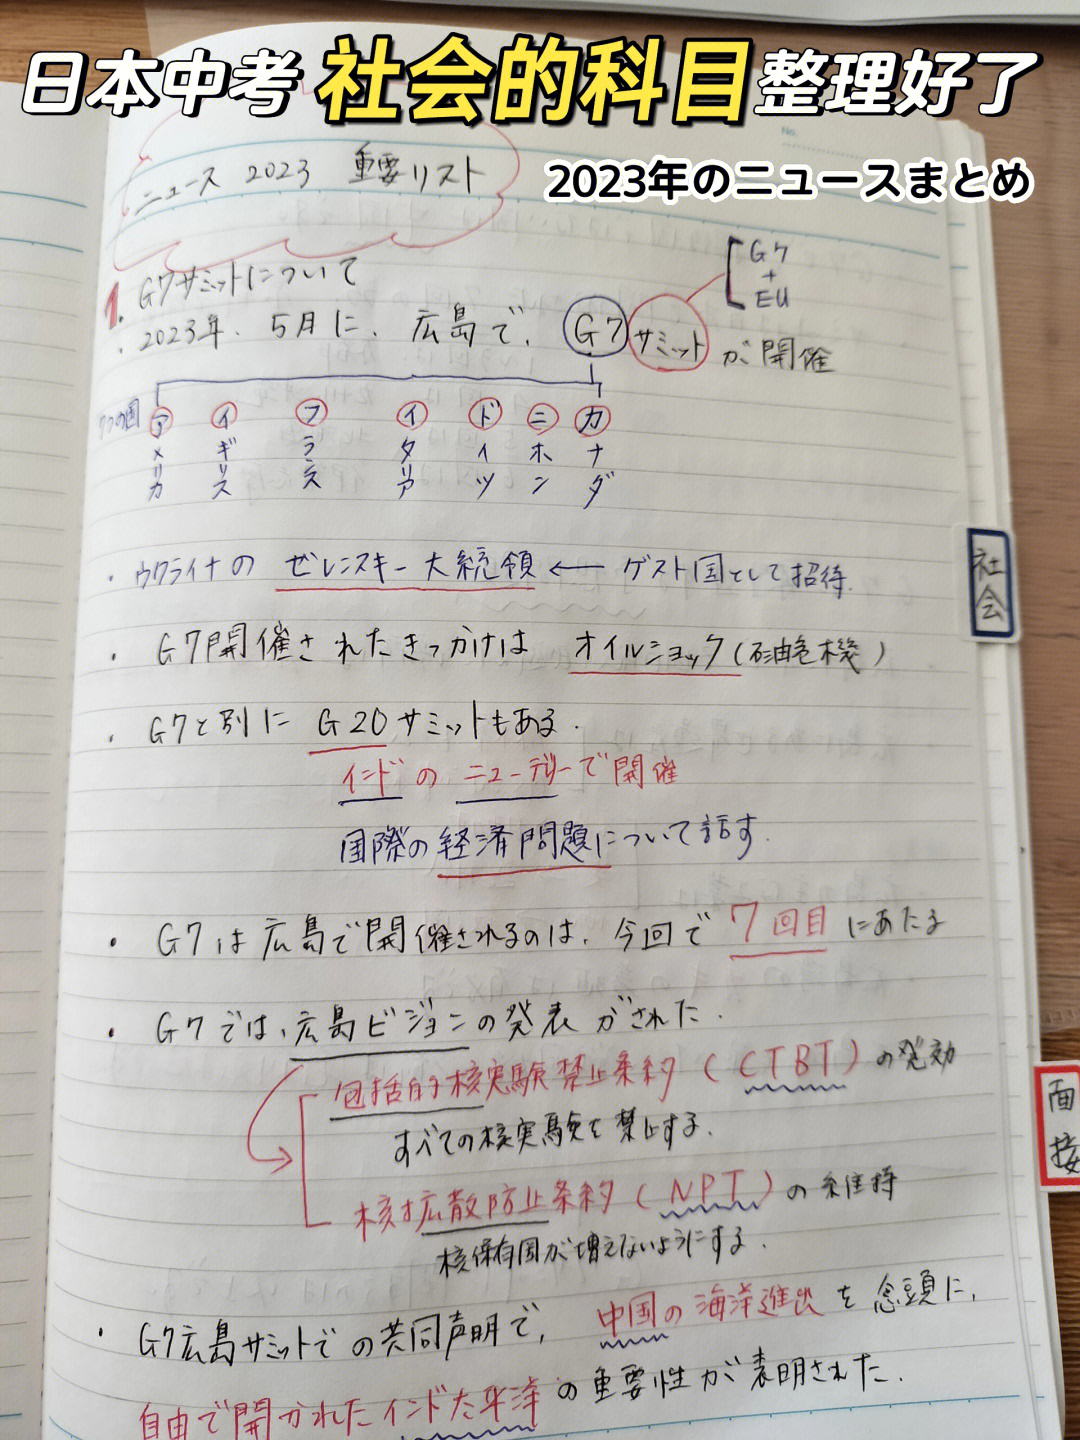 日本中考 社会的科目整理好了
2023年のニュースまとめ
No.
ニュース 2023 重要リスト
1. G7サミットについて
G7
+
EU
・2023年、5月に、広島で、G7サミットが開催
7つの国
アメリカ
イギリス
フランス
イタリア
ドイツ
ニホン
カナダ
・ウクライナの ゼレンスキー大統領 ← ゲスト国として招待.
・G7開催されたきっかけは オイルショック(石油危機)
・G7と別に G20サミットもある.
インドの ニューデリーで開催
国際の経済問題について話す.
・G7は広島で開催されるのは、今回で7回目にあたる
・G7では、広島ビジョンの発表がされた.
包括的核実験禁止条約(CTBT)の発効
すべての核実験を禁止する.
核拡散防止条約(NPT)の維持
核保有国が増えないようにする.
・G7広島サミットでの共同声明で、中国の海洋進出を念頭に、
自由で開かれたインド太平洋の重要性が表明された.
社会
面接